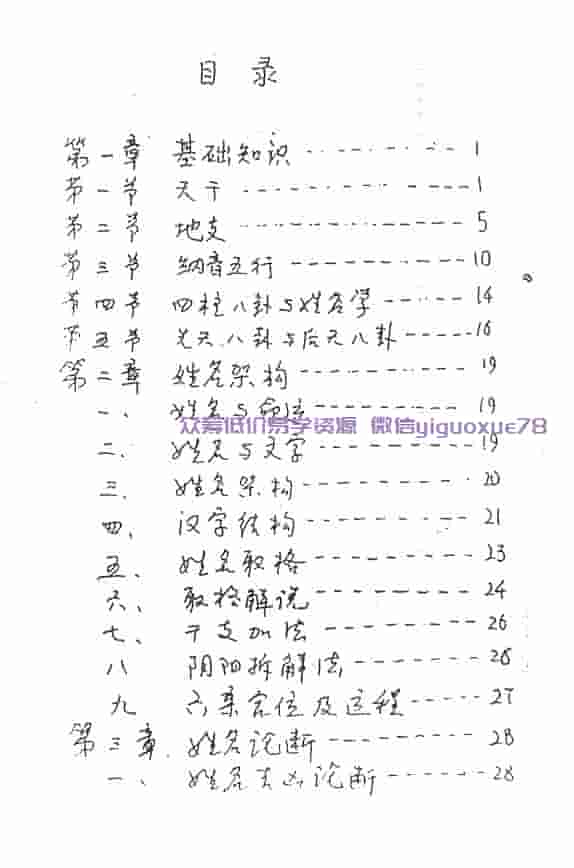 目 录
第一章 基础知识 ------- 1
第一节 天干 ------- 1
第二节 地支 ------- 5
第三节 纳音五行 ------- 10
第四节 四柱八卦与姓名学 ------- 14
第五节 先天八卦与后天八卦 ------- 16
第二章 姓名架构 ------- 19
一、 姓名与命运 ------- 19
众筹低价易学资源 微信yiguoxue78
二. 姓名与文字 ------- 19
三. 姓名架构 ------- 20
四. 汉字结构 ------- 21
五、 姓名取格 ------- 23
六、 取格解说 ------- 24
七、 干支加法 ------- 26
八 阴阳拆解法 ------- 26
九 六亲宫位及运程 ------- 27
第三章. 姓名论断 ------- 28
一、 姓名吉凶论断 ------- 28